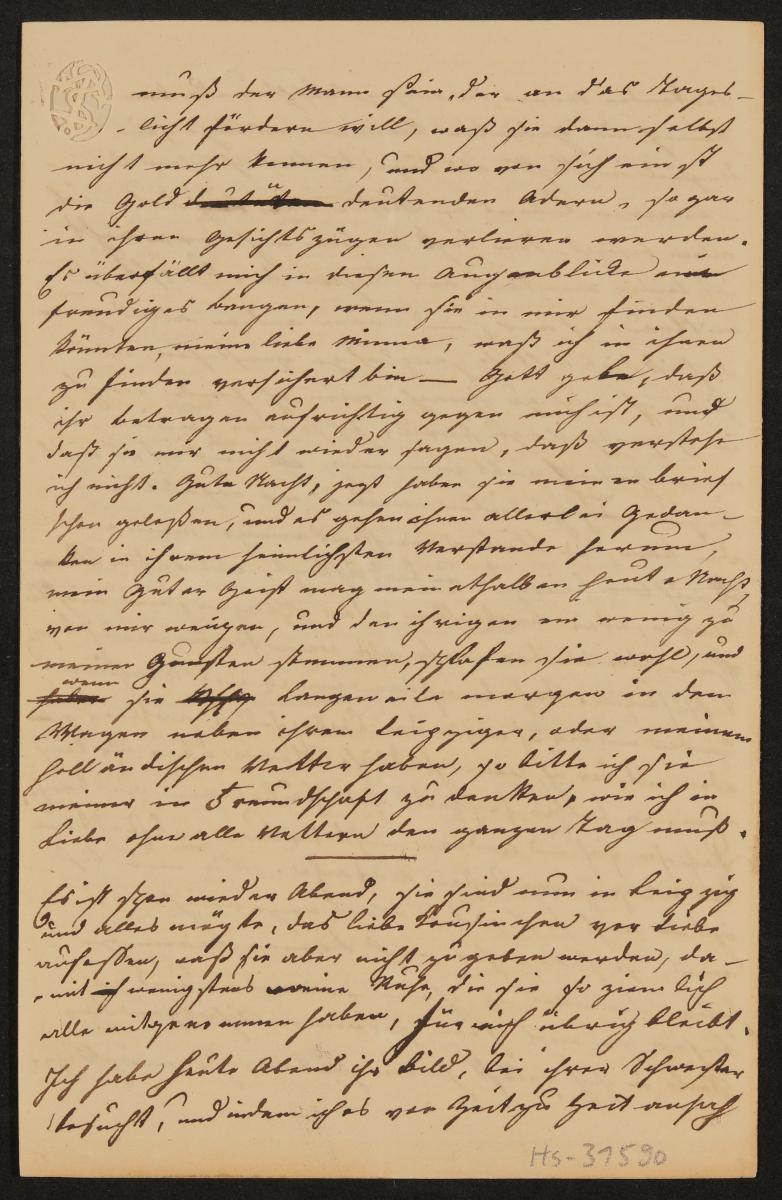 muß der Mann sein, der an das Tages-
licht fördern will, waß sie dann selbst
nicht mehr kennen, und wo von sich einst
die Gold deutenden Adern, so gar
in ihren Gesichtszügen verlieren werden.
Es überfällt mich in diesen Augenblicke ein
freudiges bangen, wenn sie in mir finden
könnten, meine liebe Minna, waß ich in ihnen
zu finden versichert bin — Gott gebe, daß
ihr betragen aufrichtig gegen mich ist, und
daß sie mir nicht wieder sagen, daß verstehe
ich nicht. Gute Nacht, jezt haben sie meinen brief
schon geleßen, und es gehen ihnen allerlei Gedan-
ken in ihrem heimlichsten Verstande herum,
mein guter Geist mag meinethalben heute Nacht,
von mir weichen, und den ihrigen ein wenig zu
meinen Gunsten stimmen, schlafen sie wohl, und
wenn sie Langeweile morgen in dem
Wagen neben ihrem Leipziger, oder meinem
holländischen Vetter haben, so bitte ich sie
meiner in Freundschaft zu denken, wie ich in
Liebe ohne alle Vettern den ganzen Tag muß.
Es ist schon wieder Abend, sie sind nun in Leipzig
und alles mögte, das liebe Cousinchen vor Liebe
aufessen, waß sie aber nicht zu geben werden, da-
mit wenigstens meine Ruhe, die sie so ziemlich
alle mitgenommen haben, für mich übrig bleibt.
Ich habe heute Abend ihr bild, bei ihrer Schwester
besucht, und indem ich es von Zeit zu Zeit ansah
Hs-31590